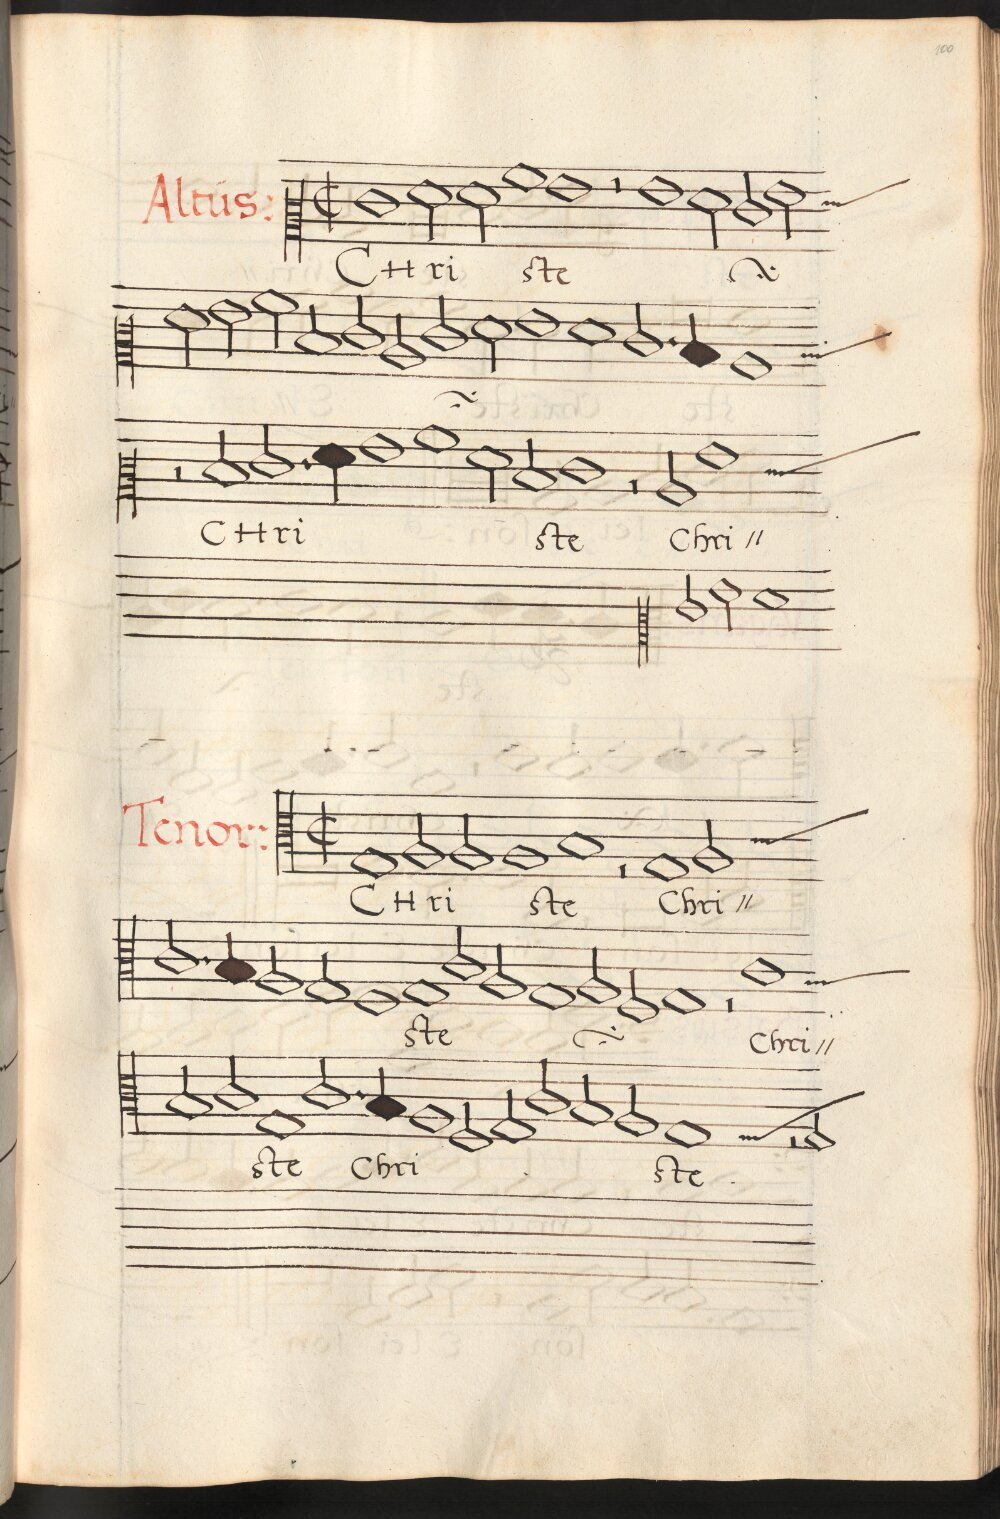 100
Altus:
CHri ste
CHri ste Chri //
Tenor:
CHri ste Chri //
ste Chri //
ste Chri ste .